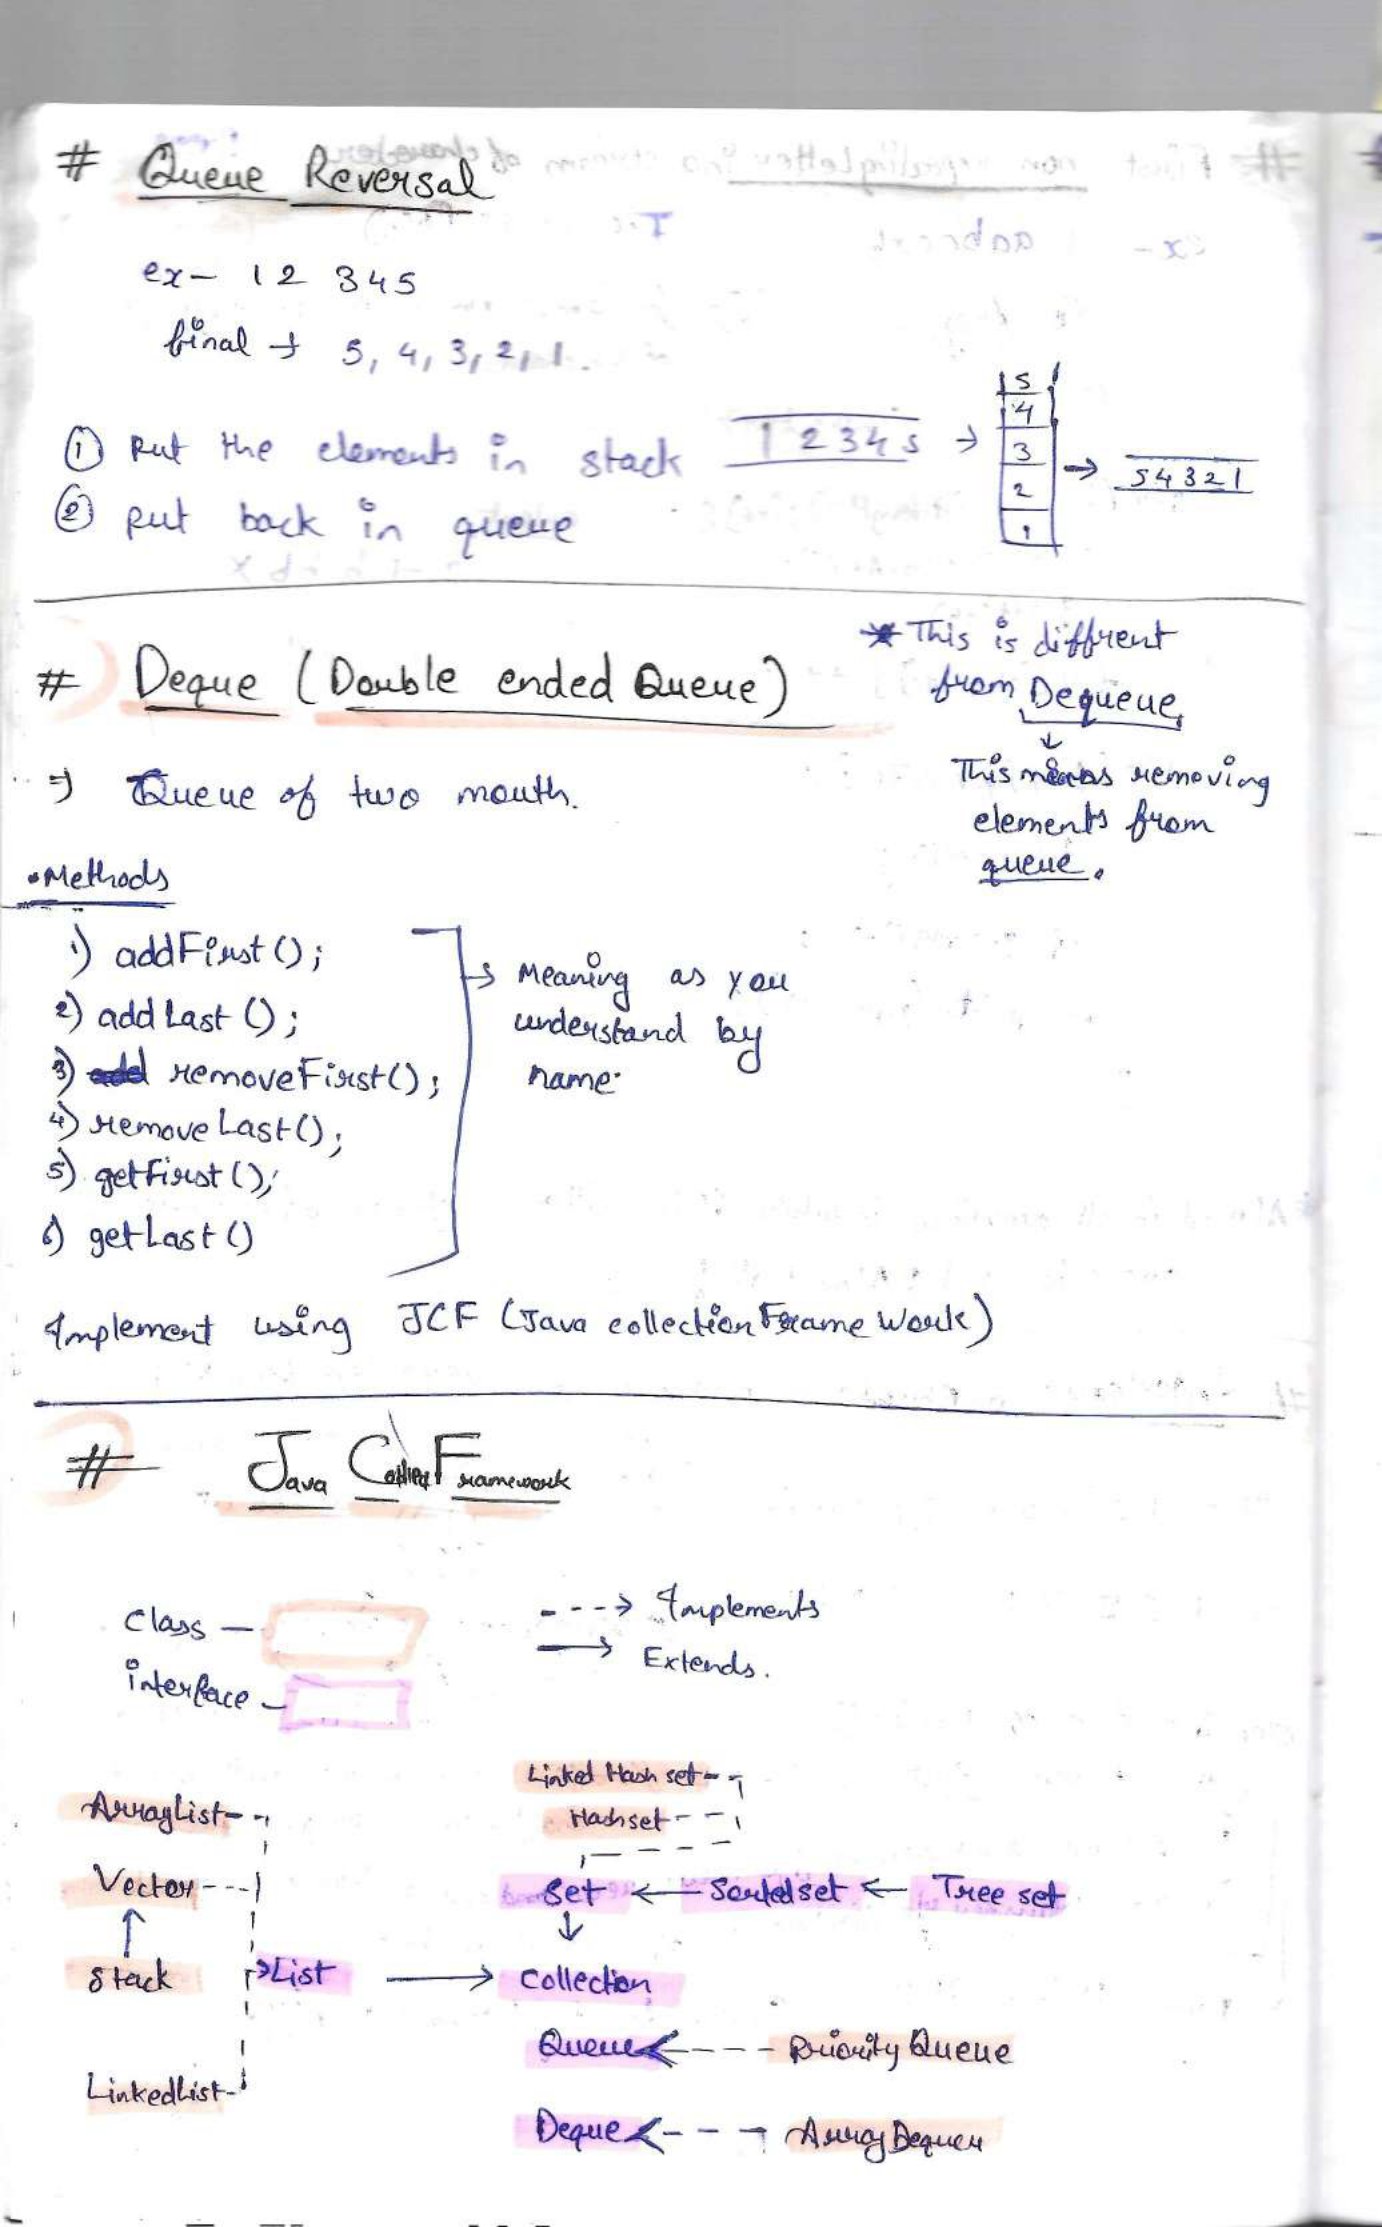 # Queue Reversal
ex- 1 2 3 4 5
final → 5, 4, 3, 2, 1.
① Put the elements in stack
1 2 3 4 5 →
5
4
3
2
1
→ 5 4 3 2 1
② put back in queue
# Deque (Double ended Queue)
* This is diffrent
from Dequeue
↓
This means removing
elements from
queue.
⇒ Queue of two mouth.
• Methods
1) addFirst();
2) addLast();
3) removeFirst();
4) removeLast();
5) getFirst();
6) getLast()
→ Meaning as you
understand by
name.
Implement using JCF (Java collection Frame Work)
# Java Framework
Class —
interface —
- - - -> Implements
→ Extends.
ArrayList
Vector
↑
Stack
LinkedList
List → Collection
Linked Hash set
Hashset
Set ← Sorted set ← Tree set
↓
Queue <- - - - Priority Queue
Deque <- - - Array Dequeu